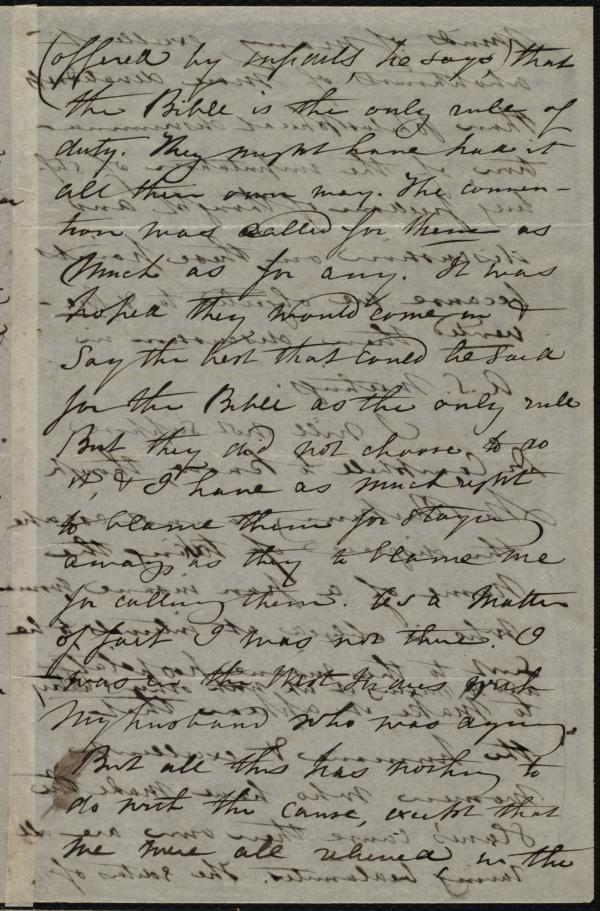 (offered by infidels, he says) that
the Bible is the only rule of
duty. They might have had it
all their own way. The conven-
tion was called for them as
much as for any. It was
hoped they would come in &
say the best that could be said
for the Bible as the only rule
But they did not choose to do
it, & I have as much right
to blame them for staying
away, as they to blame me
for calling them. As a matter
of fact I was not there. I
was in the West Indies with
my husband who was dying.
But all this has nothing to
do with the cause, except that
we were all relieved in the